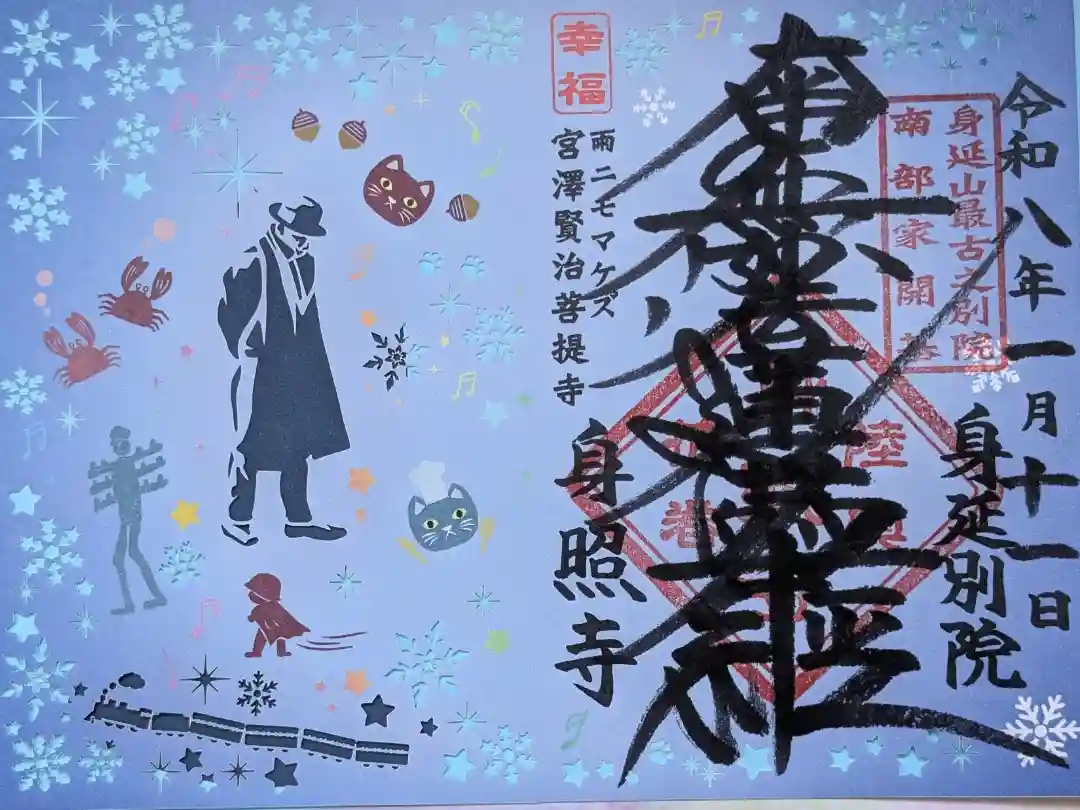 令和八年一月十一日
身延別院
身延山最古之別院
南部家開基
南無妙法蓮華経
幸福
雨ニモマケズ
宮澤賢治菩提寺
身照寺